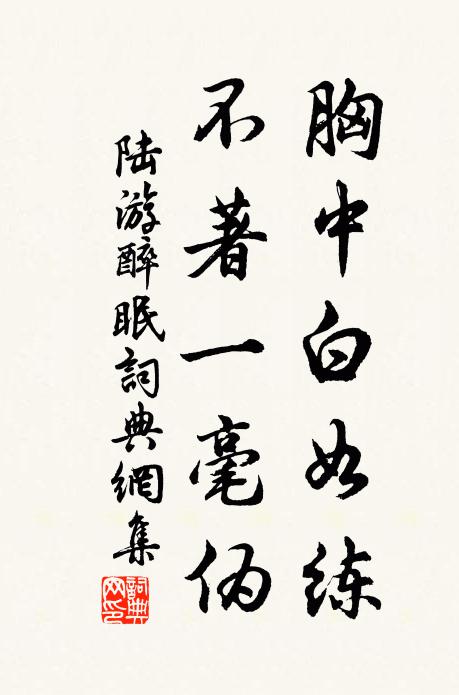 胸中白如练
不著一毫伪
陆游醉眠詞典網集
詞典网印